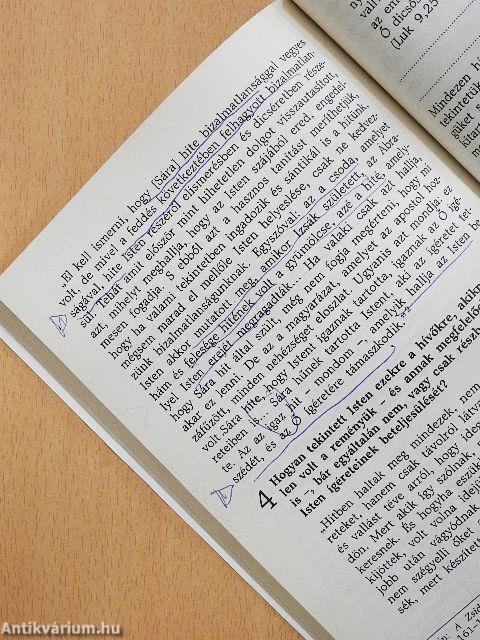 „El kell ismerni, hogy [Sára] hite bizalmatlansággal vegyes
volt, de mivel a feddés következtében felhagyott bizalmatlan-
ságával, hite Isten részéről elismerésben és dicséretben része-
sül. Tehát amit először mint hihetetlen dolgot visszautasított,
azt, mihelyt meghallja, hogy az Isten szájából ered, engedel-
mesen fogadja. S ebből azt a hasznos tanítást meríthetjük,
hogy ha valami tekintetben ingadozik és sántikál is a hitünk,
mégsem marad el mellőle Isten helyeslése, csak ne kedvez-
zünk bizalmatlanságunknak. Egyszóval: az a csoda, amelyet
Isten akkor mutatott meg, amikor Izsák született, az Ábra-
hám és felesége hitének volt a gyümölcse, azé a hité, amely-
lyel Isten erejét megragadták... Ha valaki csak azt hallja,
hogy Sára hit által szült, még nem fogja megérteni, hogy mi
akar ez lenni. De az a magyarázat, amelyet az apostol hoz-
záfűzött, minden nehézséget eloszlat. Ugyanis azt mondja: ez
volt Sára hite, hogy Istent igaznak tartotta, igaznak az Ő ígé-
reteiben is... Sára hűnek tartotta Istent, aki az ígéretet tet-
te. Az az igaz hit – mondom –, amelyik hallja az Isten be-
szédét, és az Ő ígéretére támaszkodik.”²
4 Hogyan tekintett Isten ezekre a hívőkre, akikn
len volt a reményük – és annak megfelelőe
is –, bár egyáltalán nem, vagy csak részb
Isten ígéreteinek beteljesülését?
„Hitben haltak meg mindezek, nem
reteket, hanem csak távolról látva
és vallást téve arról, hogy ideg
dön. Mert akik így szólnak, n
keresnek. És hogyha eszük
kijöttek, volt volna idejük
jobb után vágyódnak
nem szégyelli őket a
sék, mert készített
in: A Zsid
161–
Ő dicső
(Luk 9,25
Mindezen h
tekintetük
güket s
kitar
Antikvárium.hu